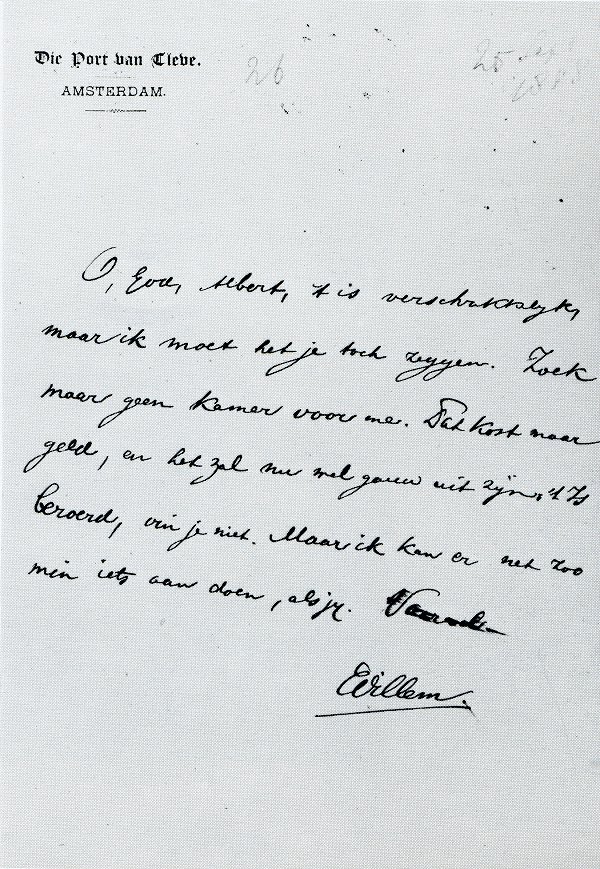 Die Port van Cleve.
AMSTERDAM.
26
25 Sept
O, God, Albert, 't is verschrikkelijk,
maar ik moet het je toch zeggen. Zoek
maar geen kamer voor me. Dat kost maar
geld, en het zal nu wel gauw uit zijn. 't Is
beroerd, vin je niet. Maar ik kan er net zoo
min iets aan doen, als jy.
Willem.